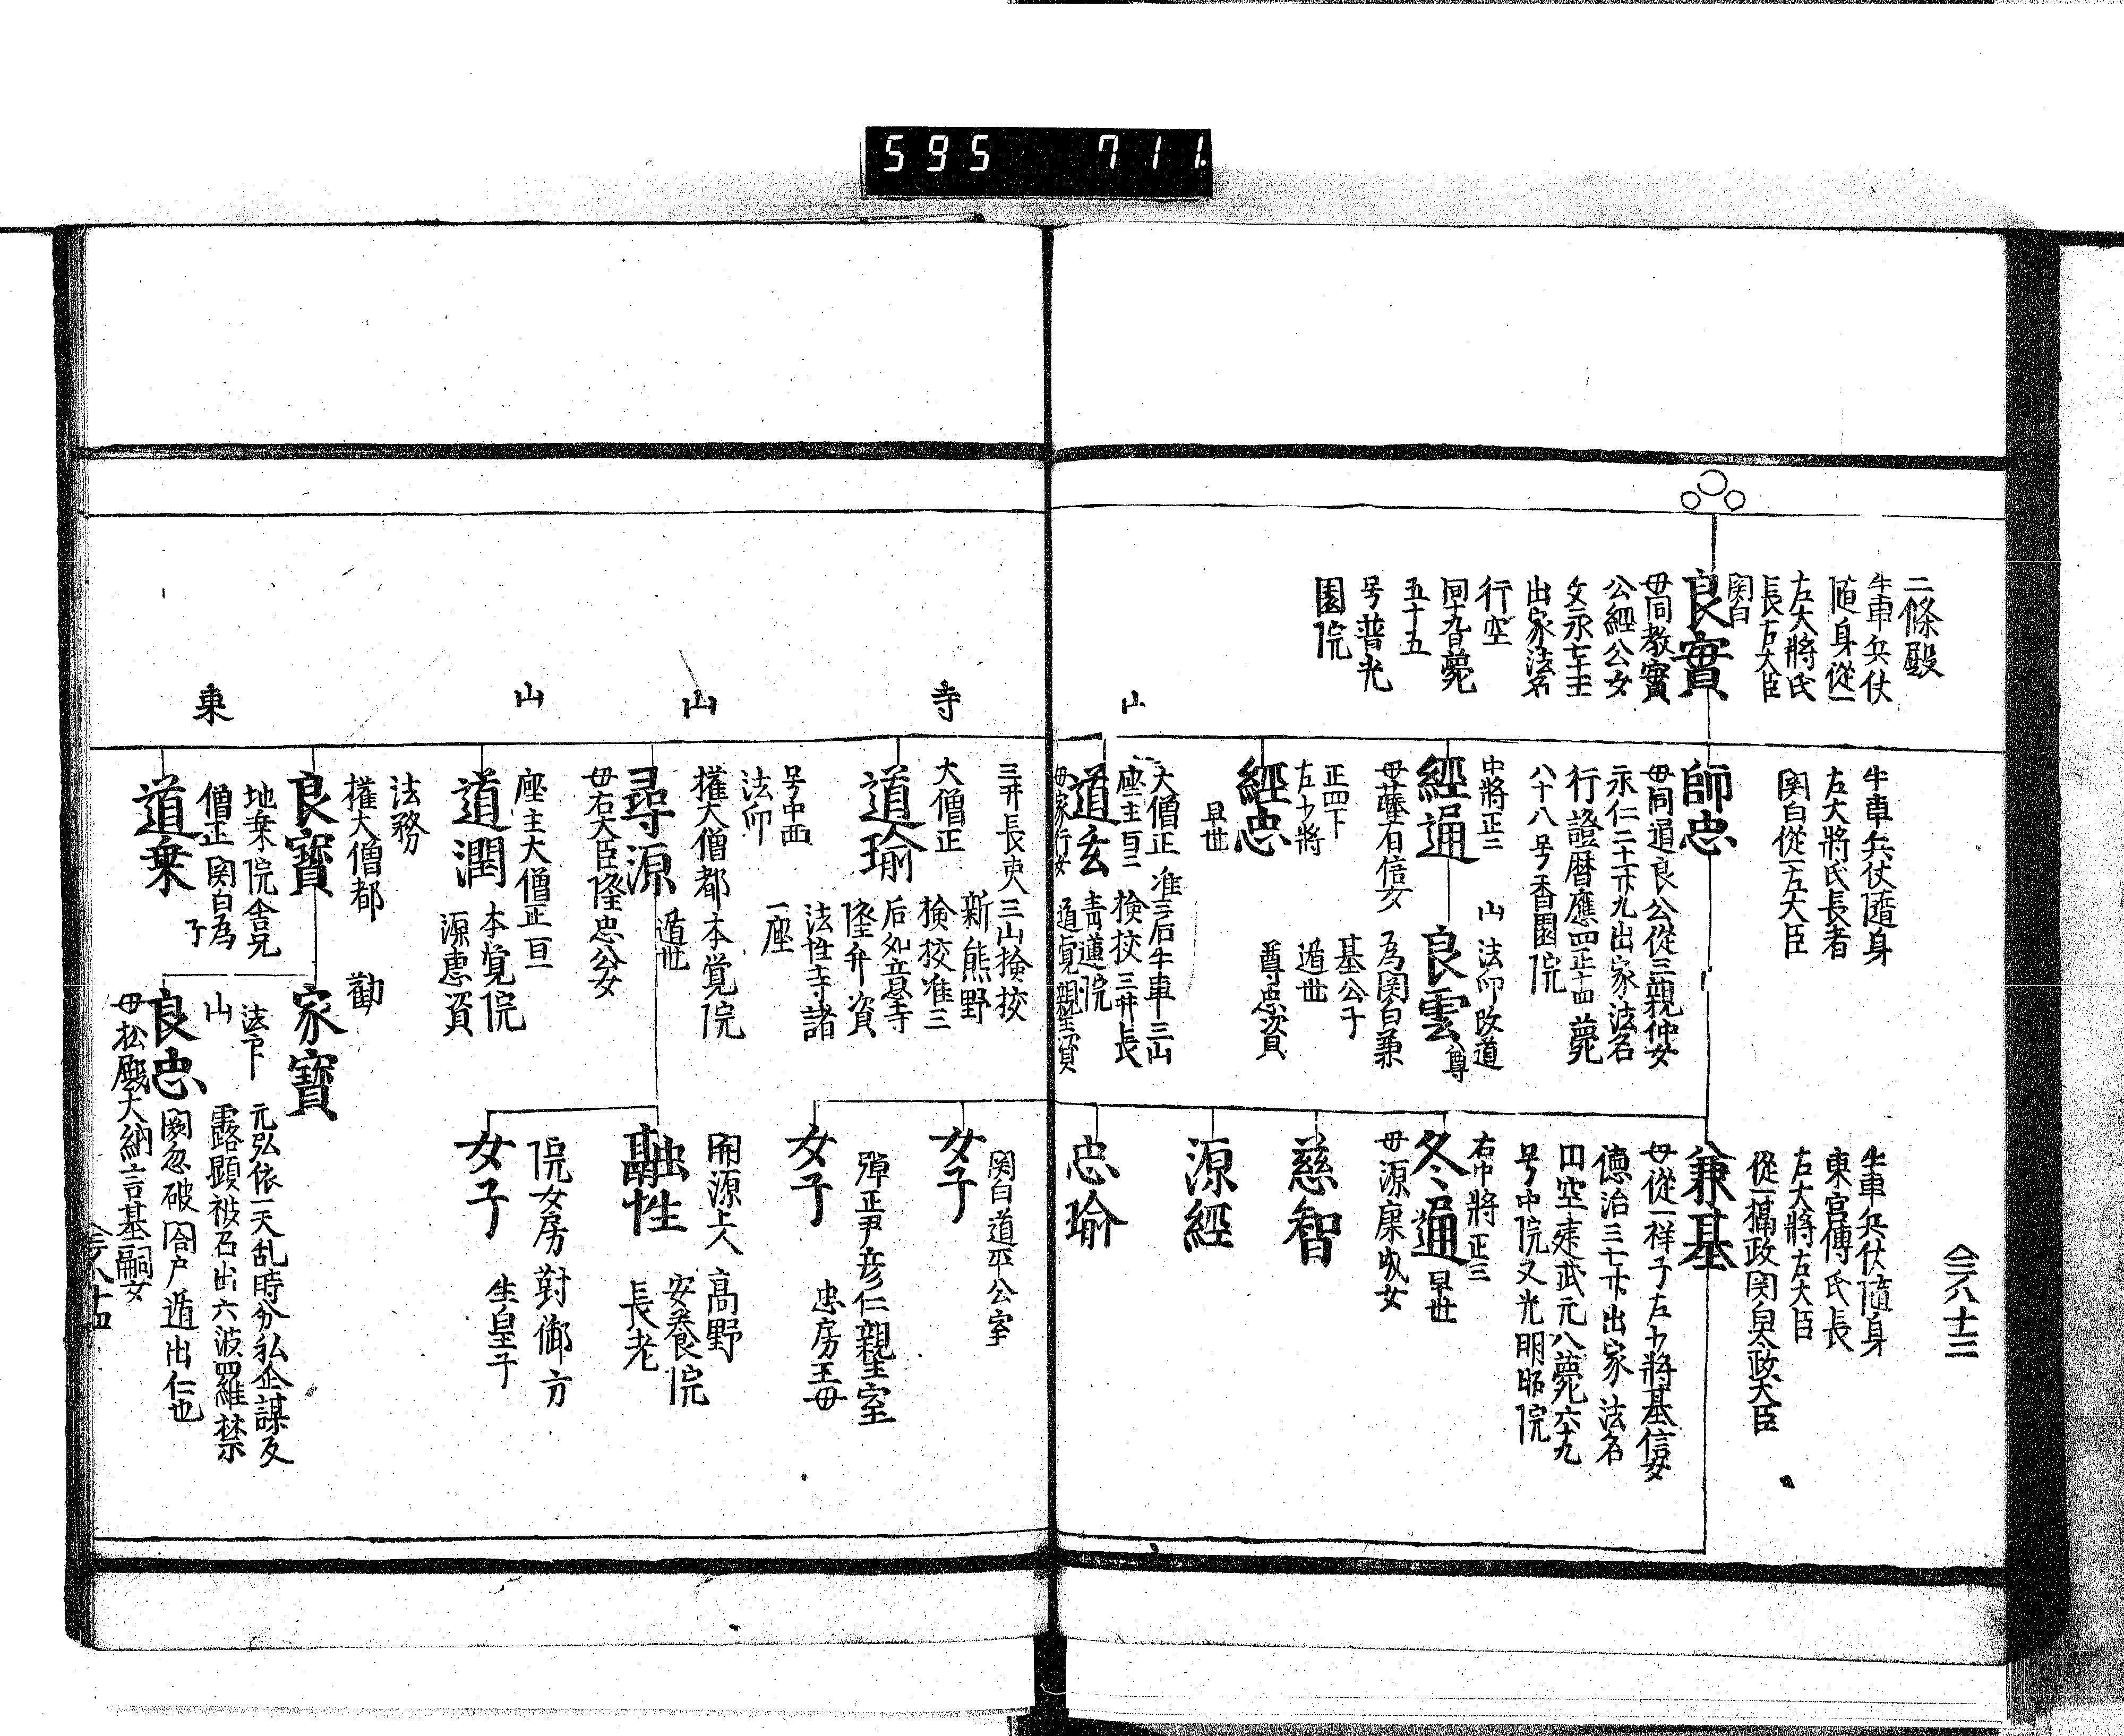 595 711.
二條殿
牛車兵仗
随身從一
左大將氏
長右大臣
関白
良實
母同教實
公經公女
文永七十二
出家法名
行空
同十九日薨
五十五
号普光
園院
牛車兵仗随身
左大將氏長者
関白從一左大臣
師忠
母同道良公從三親仲女
永仁二十廿九出家法名
行證暦應四正十四薨
八十八号香園院
中將正二
經通
母藤有信女
山
法印改道
良雲
尊
為関白兼
基公子
遁世
尊忠資
正四下
左少將
經忠
早世
山
大僧正 准三后牛車三山
座主百二 検校三井長
道玄
青蓮院
母家行女 道覚親王資
牛車兵仗随身
東宮傅氏長
左大將右大臣
從一攝政関白太政大臣
兼基
母從一祥子左少將基信女
德治三七廿出家法名
円空建武元八薨六十九
号中院又光明昭院
右中將正三
冬通
早世
母源康成女
慈智
源經
忠瑜
会八十三
寺
三井長吏三山検校
新熊野
大僧正
検校准三
道瑜
后如意寺
隆弁資
法性寺諸
一座
号中西
法印
山
權大僧都 本覚院
尋源
遁世
母右大臣隆忠公女
山
座主大僧正百一
道潤
本覚院
源恵資
法務
權大僧都
勸
良寳
家寳
東
地乗院舎兄
僧正関白為
子
道乗
法下
山
元弘依一天乱時分私企謀反
露顕被召出六波羅禁
良忠
闕忽破闔戸遁出仁也
母松殿大納言基嗣女
関白道平公室
女子
彈正尹彦仁親王室
女子
忠房王母
開源上人 高野
安養院
融性
長老
院女房對御方
女子
生皇子
会八十四